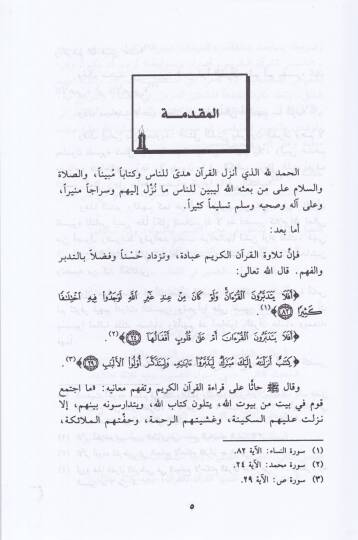 المقدمة
الحمد لله الذي أنزل القرآن هدىً للناس وكتاباً مُبيناً، والصلاة
والسلام على من بعثه الله ليبين للناس ما نُزّل إليهم وسراجاً منيراً،
وعلى آله وصحبه وسلم تسليماً كثيراً.
أما بعد:
فإنّ تلاوة القرآن الكريم عبادة، وتزداد حُسْناً وفضلاً بالتدبر
والفهم. قال الله تعالى:
﴿أَفَلَا يَتَدَبَّرُونَ ٱلْقُرْءَانَ وَلَوْ كَانَ مِنْ عِندِ غَيْرِ ٱللَّهِ لَوَجَدُوا۟ فِيهِ ٱخْتِلَٰفًا
كَثِيرًا ﴿٨٢﴾﴾(١).
﴿أَفَلَا يَتَدَبَّرُونَ ٱلْقُرْءَانَ أَمْ عَلَىٰ قُلُوبٍ أَقْفَالُهَآ ﴿٢٤﴾﴾(٢).
﴿كِتَٰبٌ أَنزَلْنَٰهُ إِلَيْكَ مُبَٰرَكٌ لِّيَدَّبَّرُوٓا۟ ءَايَٰتِهِۦ وَلِيَتَذَكَّرَ أُو۟لُوا۟ ٱلْأَلْبَٰبِ ﴿٢٩﴾﴾(٣).
وقال ﷺ حاثّاً على قراءة القرآن الكريم وتفهم معانيه: «ما اجتمع
قوم في بيت من بيوت الله، يتلون كتاب الله، ويتدارسونه بينهم، إلا
نزلت عليهم السكينة، وغشيتهم الرحمة، وحفّتهم الملائكة،
(١) سورة النساء: الآية ٨٢.
(٢) سورة محمد: الآية ٢٤.
(٣) سورة ص: الآية ٢٩.
٥